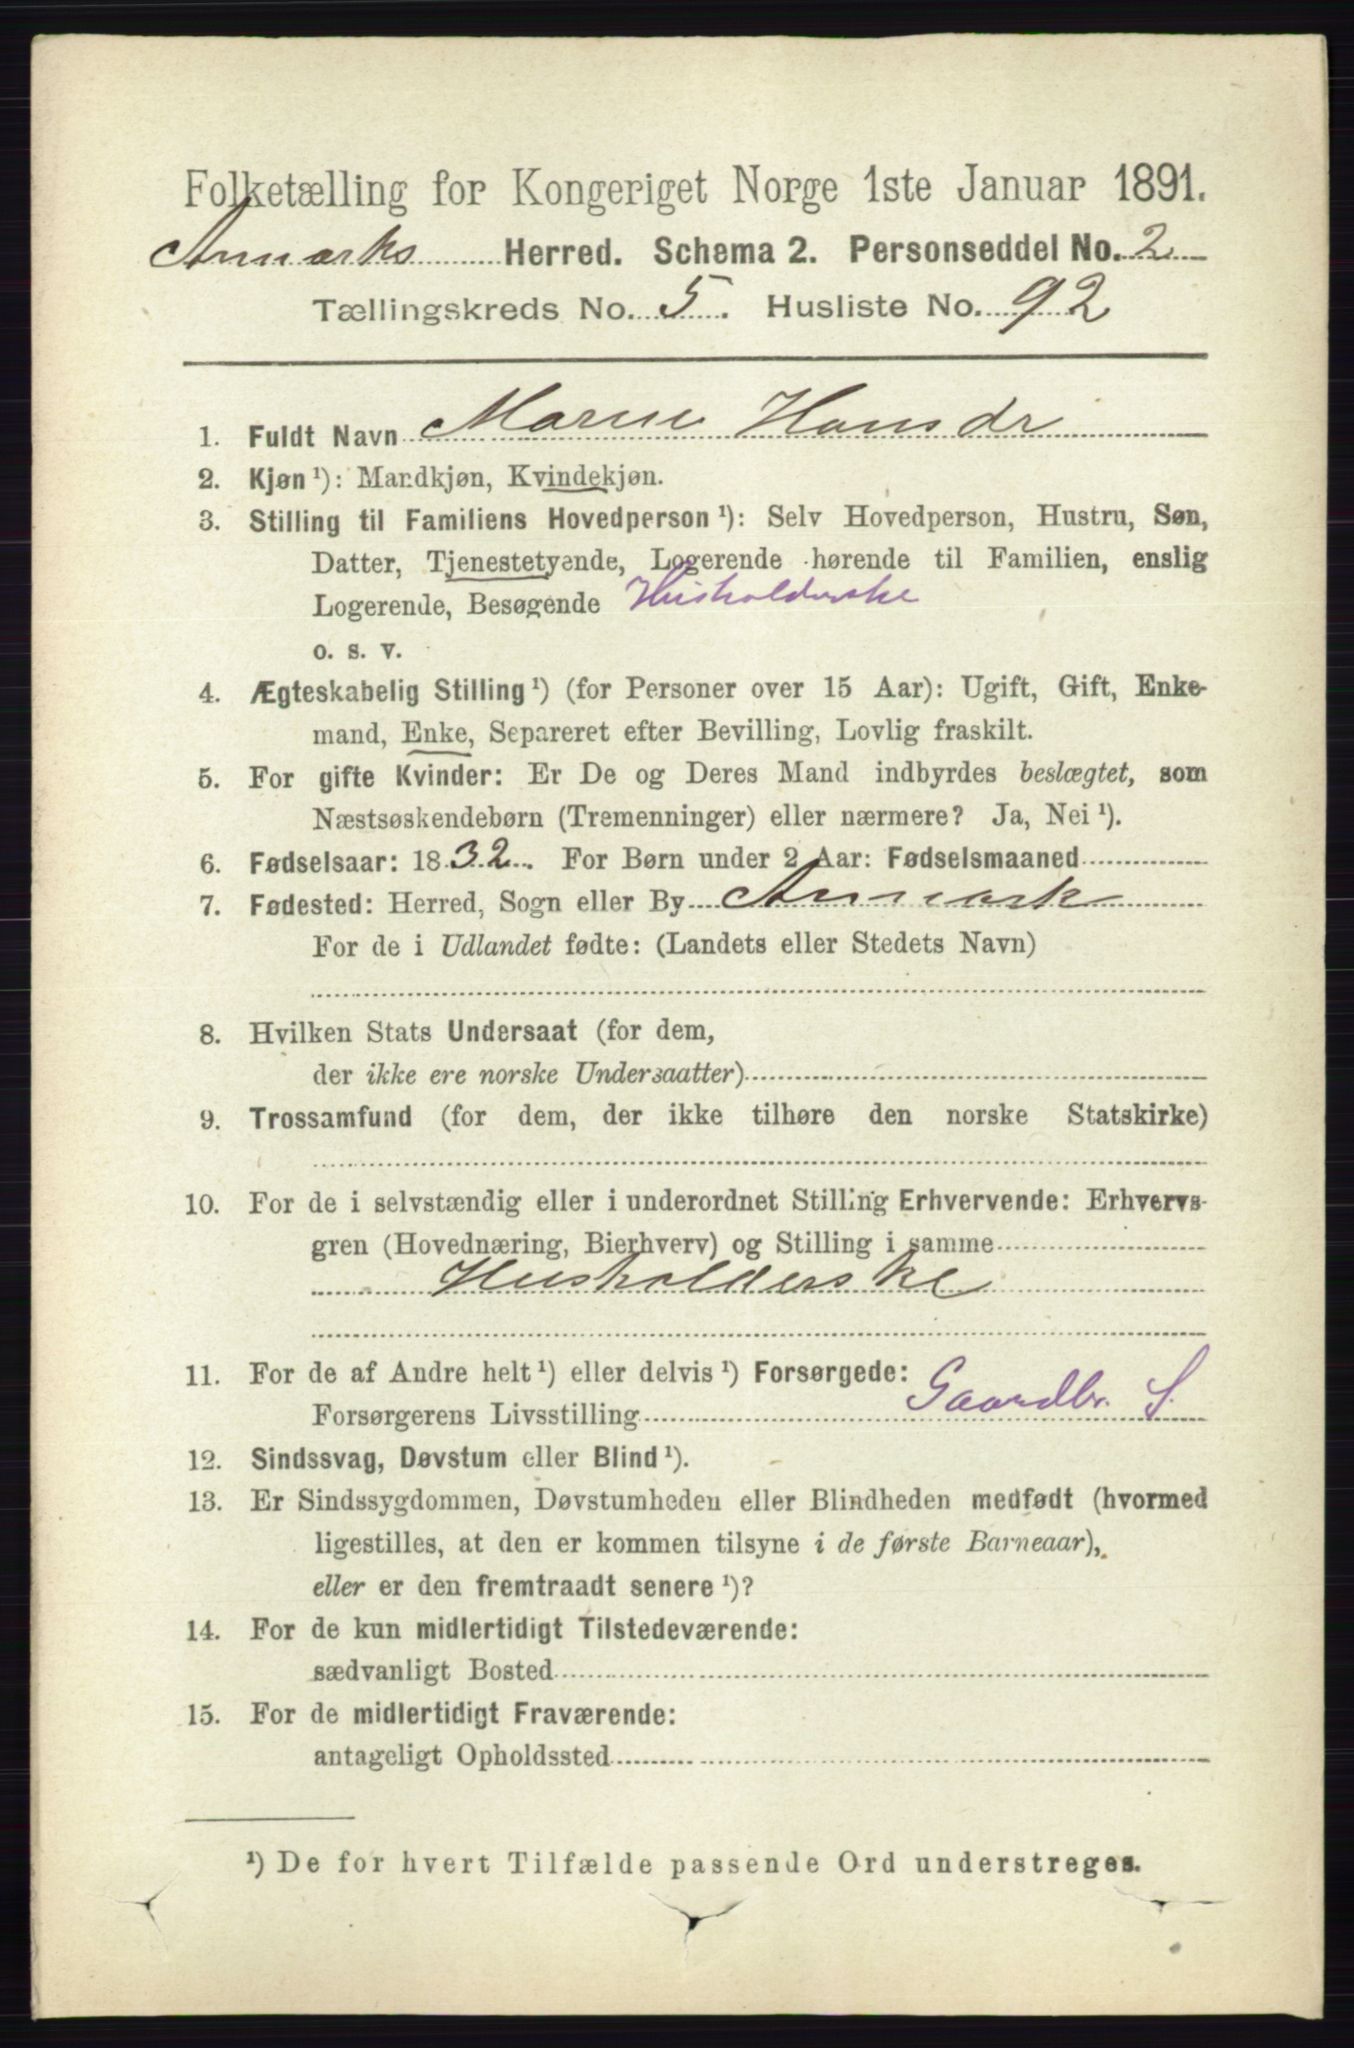 Folketælling for Kongeriget Norge 1ste Januar 1891.
Aremarks Herred. Schema 2. Personseddel No. 2
Tællingskreds No. 5. Husliste No. 92
1. Fuldt Navn Maren Hansdr
2. Kjøn ¹): Mandkjøn, Kvindekjøn.
3. Stilling til Familiens Hovedperson ¹): Selv Hovedperson, Hustru, Søn,
Datter, Tjenestetyende, Logerende hørende til Familien, enslig
Logerende, Besøgende Husholderske
o. s. v.
4. Ægteskabelig Stilling ¹) (for Personer over 15 Aar): Ugift, Gift, Enke-
mand, Enke, Separeret efter Bevilling, Lovlig fraskilt.
5. For gifte Kvinder: Er De og Deres Mand indbyrdes beslægtet, som
Næstsøskendebørn (Tremenninger) eller nærmere? Ja, Nei ¹).
6. Fødselsaar: 1832. For Børn under 2 Aar: Fødselsmaaned
7. Fødested: Herred, Sogn eller By Aremark
For de i Udlandet fødte: (Landets eller Stedets Navn)
8. Hvilken Stats Undersaat (for dem,
der ikke ere norske Undersaatter)
9. Trossamfund (for dem, der ikke tilhøre den norske Statskirke)
10. For de i selvstændig eller i underordnet Stilling Erhvervende: Erhvervs-
gren (Hovednæring, Bierhverv) og Stilling i samme
Husholderske
11. For de af Andre helt ¹) eller delvis ¹) Forsørgede:
Forsørgerens Livsstilling Gaardbr. S.
12. Sindssvag, Døvstum eller Blind ¹).
13. Er Sindssygdommen, Døvstumheden eller Blindheden medfødt (hvormed
ligestilles, at den er kommen tilsyne i de første Barneaar),
eller er den fremtraadt senere ¹)?
14. For de kun midlertidigt Tilstedeværende:
sædvanligt Bosted
15. For de midlertidigt Fraværende:
antageligt Opholdssted
¹) De for hvert Tilfælde passende Ord understreges.